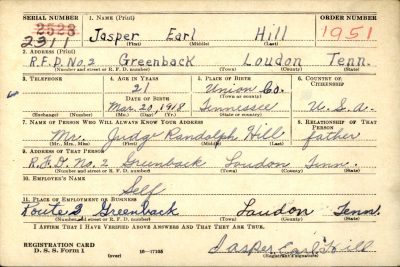 SERIAL NUMBER 1. NAME (Print) ORDER NUMBER
2528
2311 Jasper Earl Hill 1951
(First) (Middle) (Last)
2. ADDRESS (Print)
R.F.D. No. 2 Greenback Loudon Tenn.
(Number and street or R. F. D. number) (Town) (County) (State)
3. TELEPHONE 4. AGE IN YEARS 5. PLACE OF BIRTH 6. COUNTRY OF CITIZENSHIP
21 Union Co.
DATE OF BIRTH (Town or county)
Mar. 20, 1918 Tennessee U.S.A.
(Exchange) (Number) (Mo.) (Day) (Yr.) (State or country)
7. NAME OF PERSON WHO WILL ALWAYS KNOW YOUR ADDRESS 8. RELATIONSHIP OF THAT PERSON
Mr. Judge Randolph Hill father
(Mr., Mrs., Miss) (First) (Middle) (Last)
9. ADDRESS OF THAT PERSON
R.F.D. No. 2 Greenback Loudon Tenn.
(Number and street or R. F. D. number) (Town) (County) (State)
10. EMPLOYER'S NAME
Self
11. PLACE OF EMPLOYMENT OR BUSINESS
Route 2 Greenback Loudon Tenn.
(Number and street or R. F. D. number) (Town) (County) (State)
I AFFIRM THAT I HAVE VERIFIED ABOVE ANSWERS AND THAT THEY ARE TRUE.
REGISTRATION CARD
D. S. S. Form 1 (over) 16-17105 Jasper Earl Hill
(Registrant's signature)